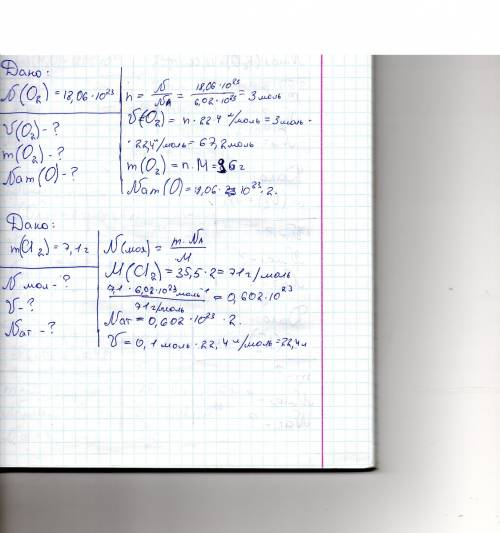 Дано:
N(O2) = 18,06·10²³
V(O2) - ?
m(O2) - ?
Nат(O) - ?
n = N/NA = 18,06·10²³/6,02·10²³ = 3 моль
V(O2) = n·22,4 л/моль = 3 моль·
·22,4 л/моль = 67,2 моль
m(O2) = n·M = 96 г
Nат(O) = 18,06·10²³·2.
Дано:
m(Cl2) = 7,1 г
N мол - ?
V - ?
Nат - ?
N(мол) = m·NA/M
M(Cl2) = 35,5·2 = 71 г/моль
7,1·6,02·10²³ моль⁻¹/71 г/моль = 0,602·10²³
Nат = 0,602·10²³·2.
V = 0,1 моль·22,4 л/моль = 22,4 л